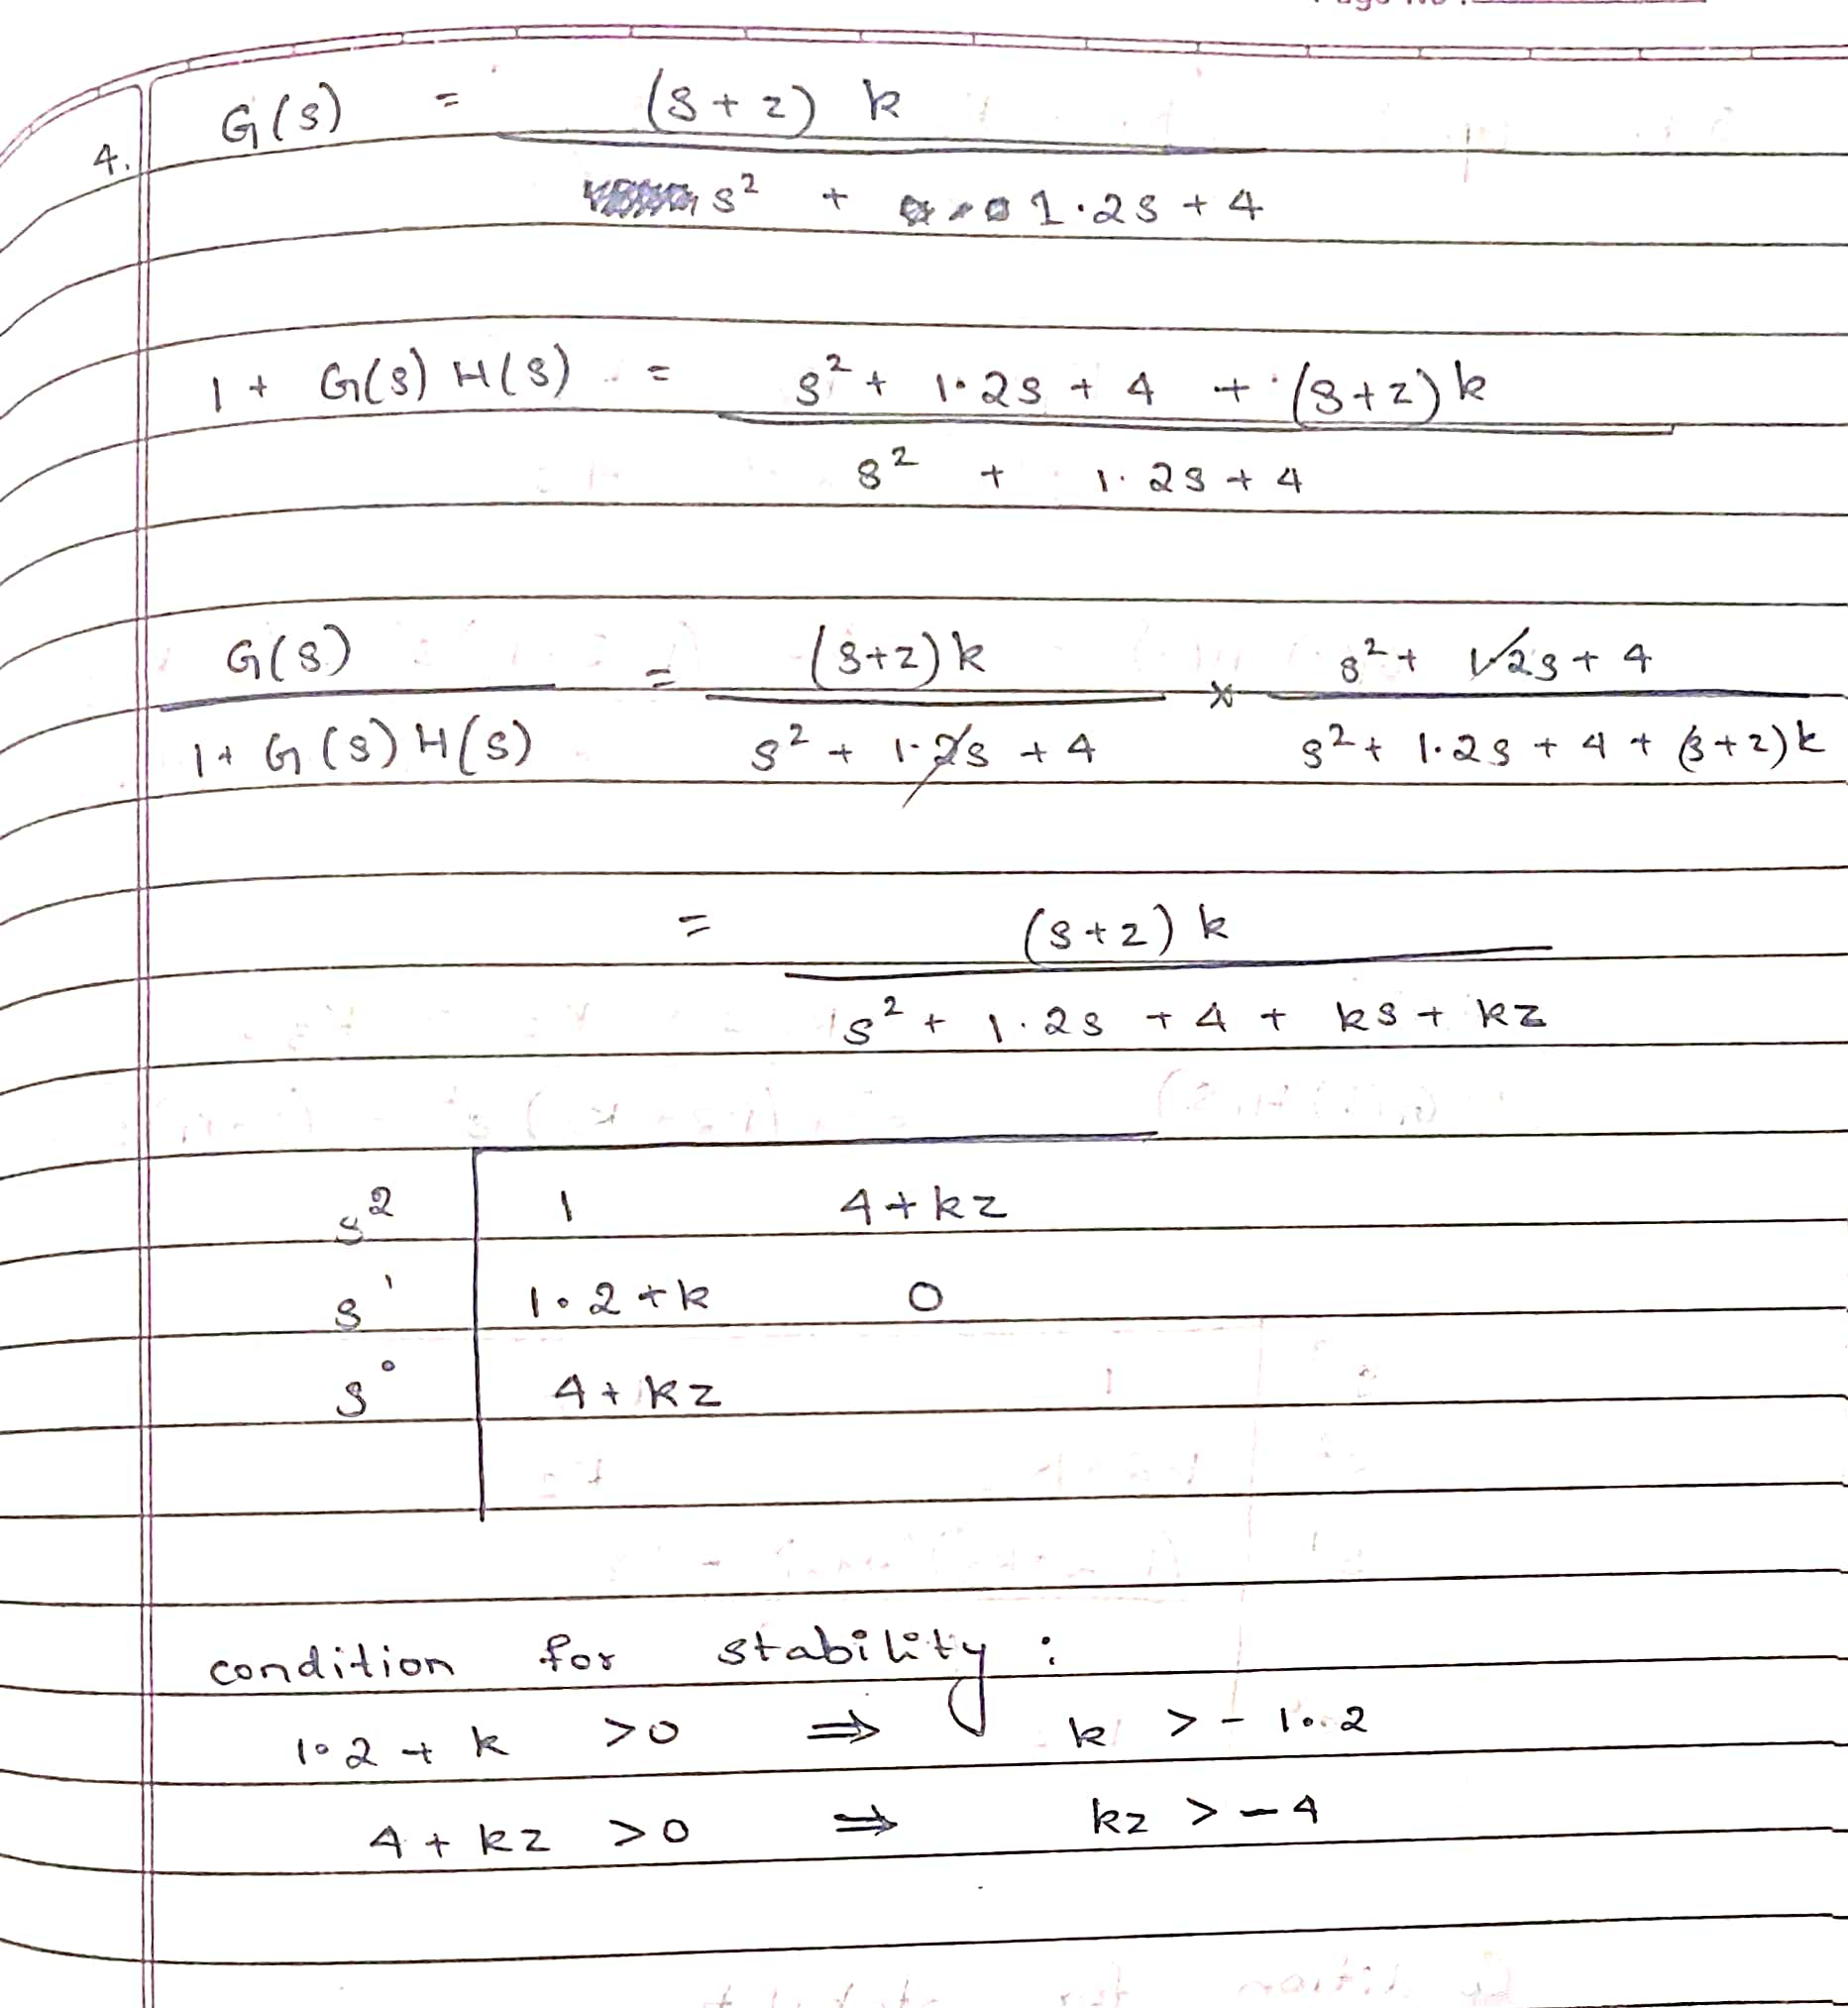 Page No :
4. G(s) = (s+z) k
s² + 1.2s + 4
1 + G(s) H(s) = s² + 1.2s + 4 + (s+z)k
s² + 1.2s + 4
G(s) = (s+z)k × s² + 1.2s + 4
1 + G(s) H(s) s² + 1.2s + 4 s² + 1.2s + 4 + (s+z)k
= (s+z) k
s² + 1.2s + 4 + ks + kz
s² 1 4+kz
s¹ 1.2+k 0
s⁰ 4+kz
condition for stability :
1.2 + k >0 ⇒ k > -1.2
4 + kz >0 ⇒ kz > -4